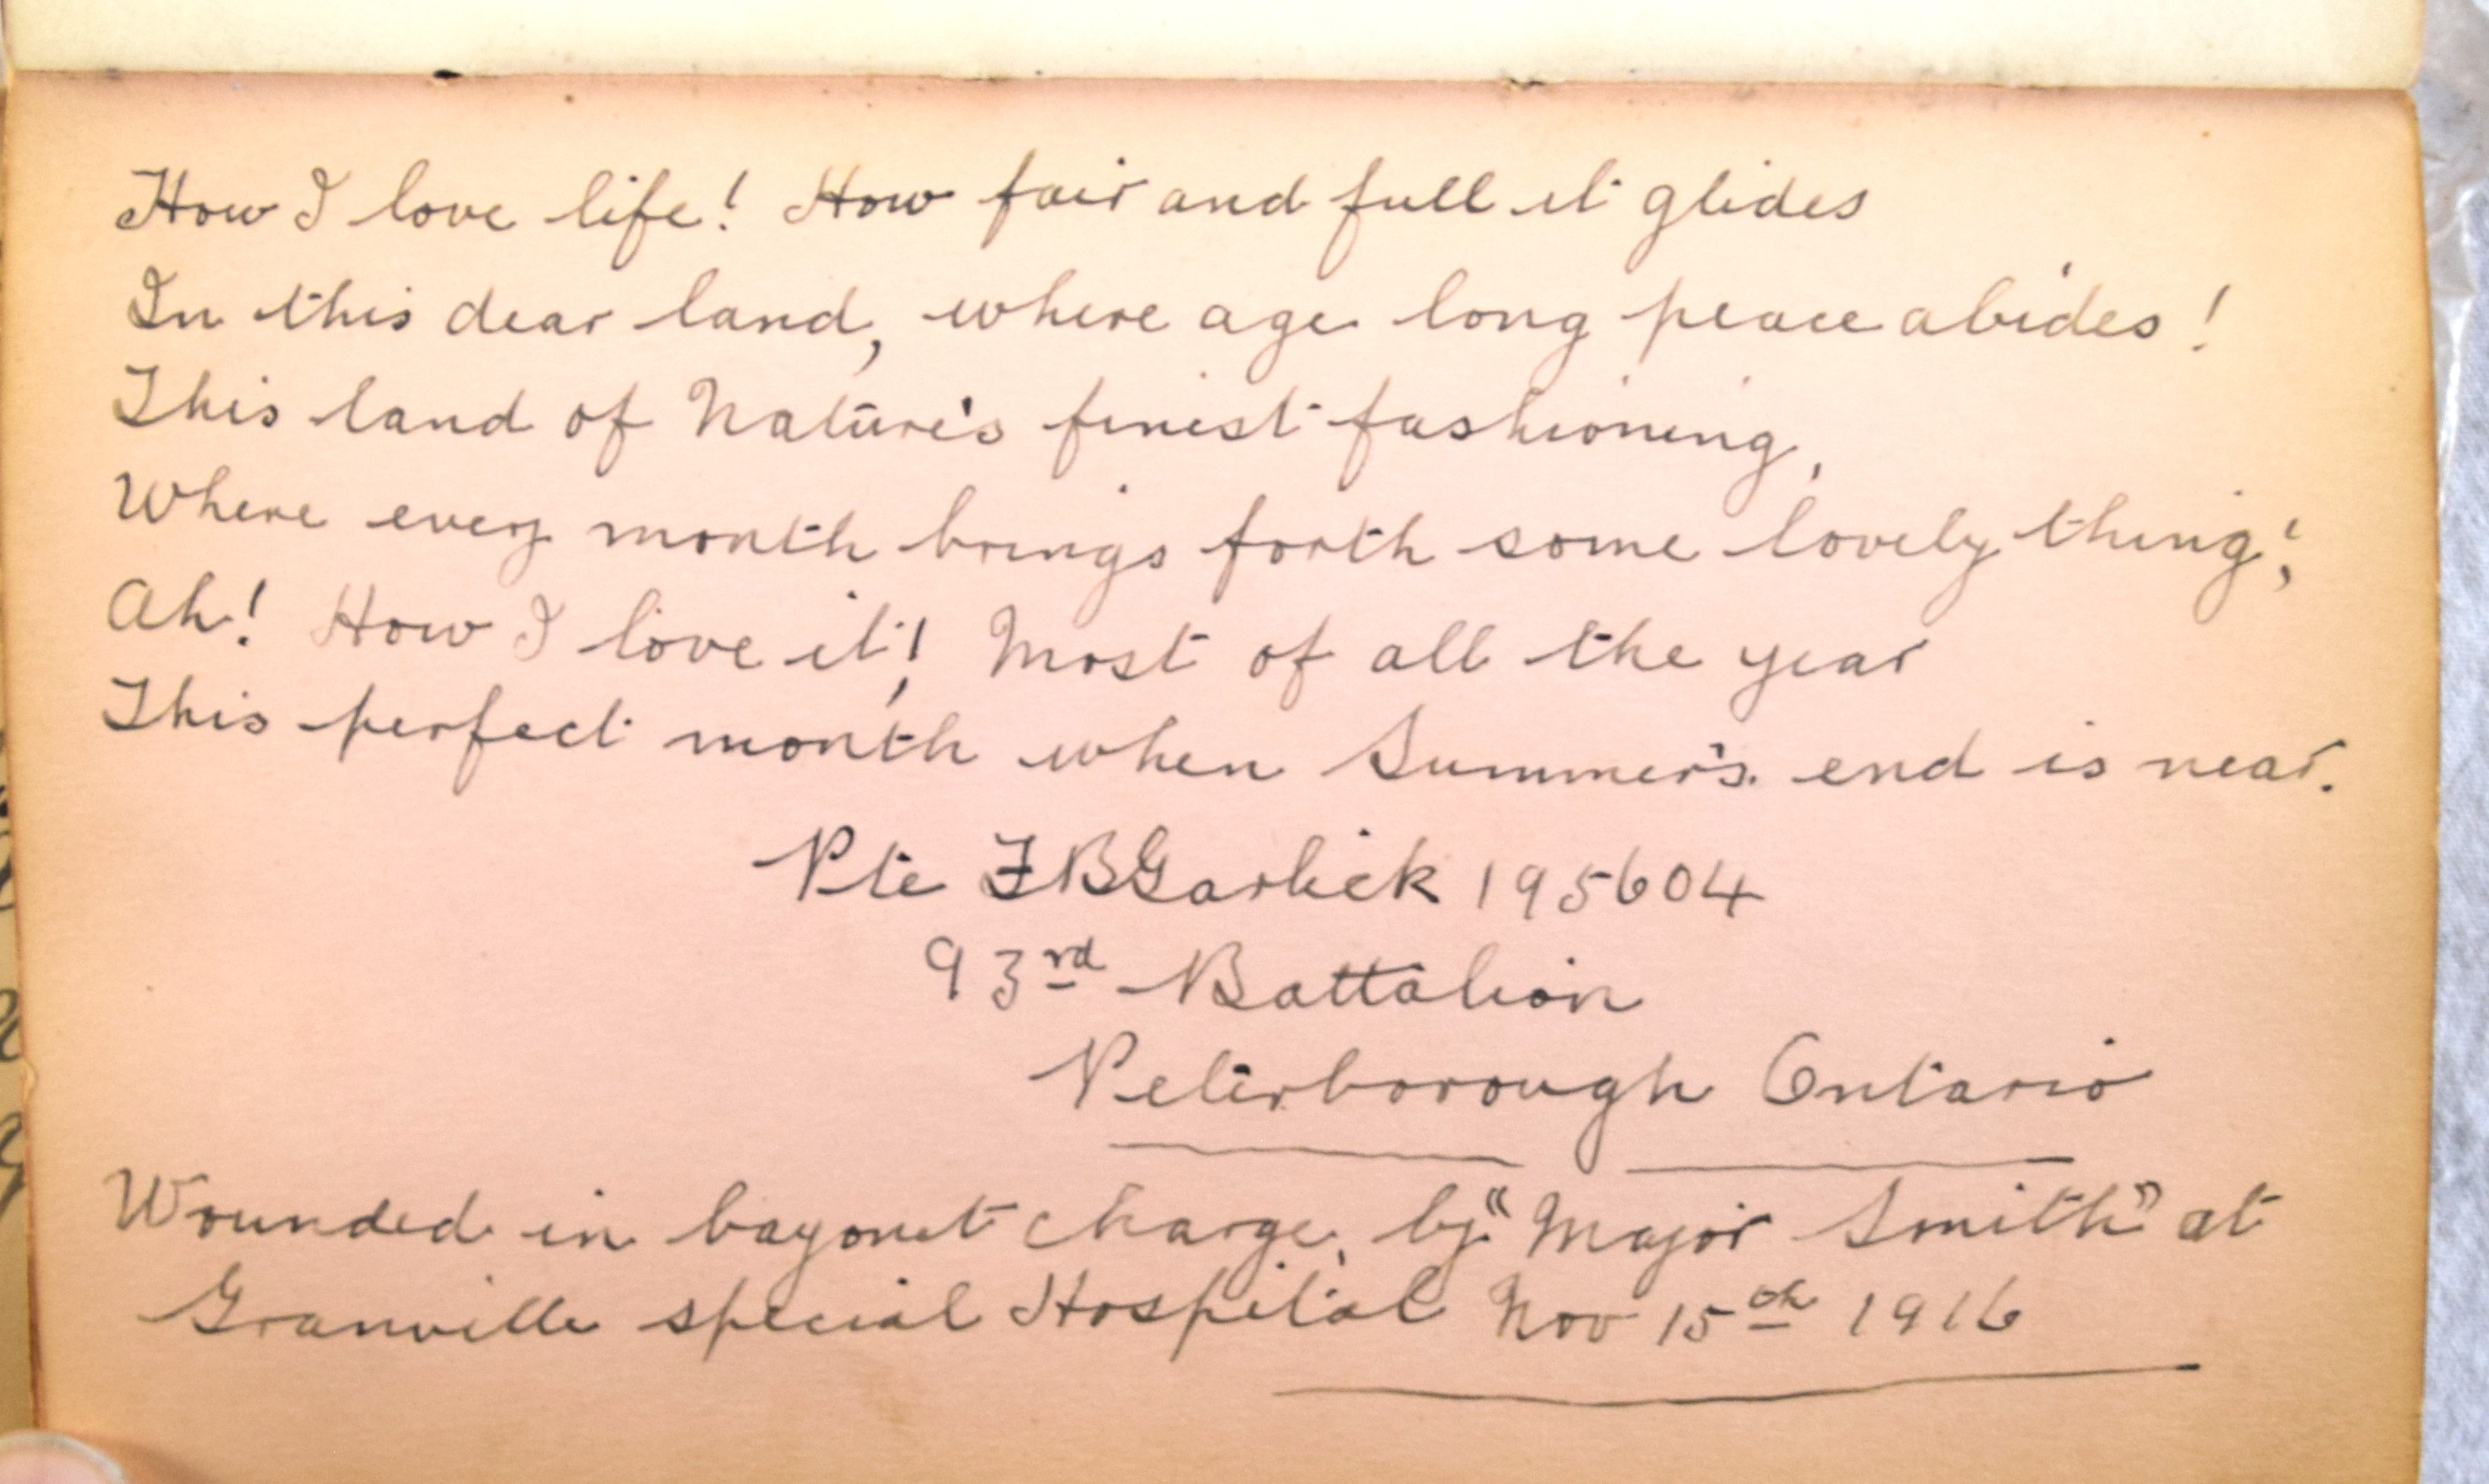 How I love life! How fair and full it glides
In this dear land, where age long peace abides!
This land of Nature's finest fashioning,
Where every month brings forth some lovely thing;
Ah! How I love it! Most of all the year
This perfect month when Summer's end is near.
Pte FB Garlick 195604
93rd Battalion
Peterborough Ontario
Wounded in bayonet charge, by "Major Smith" at
Granville special Hospital Nov 15th 1916